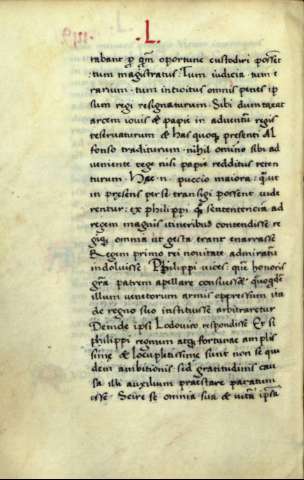 L
rabant p qm oportune custodiri posset
tum magistratus: Tum iudicia tum e
rarium. tum introitus omnis penes ip
sum regi resignaturum. Sibi dumtaxat
arcem iouis & papie in aduentu regis
reseruaturum & has quoq presenti Al
fonso traditurum. nihil omnino sibi ad
ueniente rege nisi papie redditus reten
turum. Hac n. puccio maiora: qut in
presens per se transigi possent uide
rentur: ex philippi q sententencia ad
regem magnis itineribus contendisse re
giq omnia ut gesta erant enarrasse
Regem primo rei nouitate admiratu
indoluisse. Philippi uices: que honoris
gra patrem apellare consuesset quodque
illum uenetorum armis oppressum ita
de regno suo instituisse arbitraretur
Deinde ipsi Lodouico respondisse Et si
philippi regnum atq fortunae amplis
sime & locupletissime sunt non se qui
dem ambitionis sed gratitudinis cau
sa illi auxilium praestare paratum
esse. Scire se omnia sua & uita ipsa